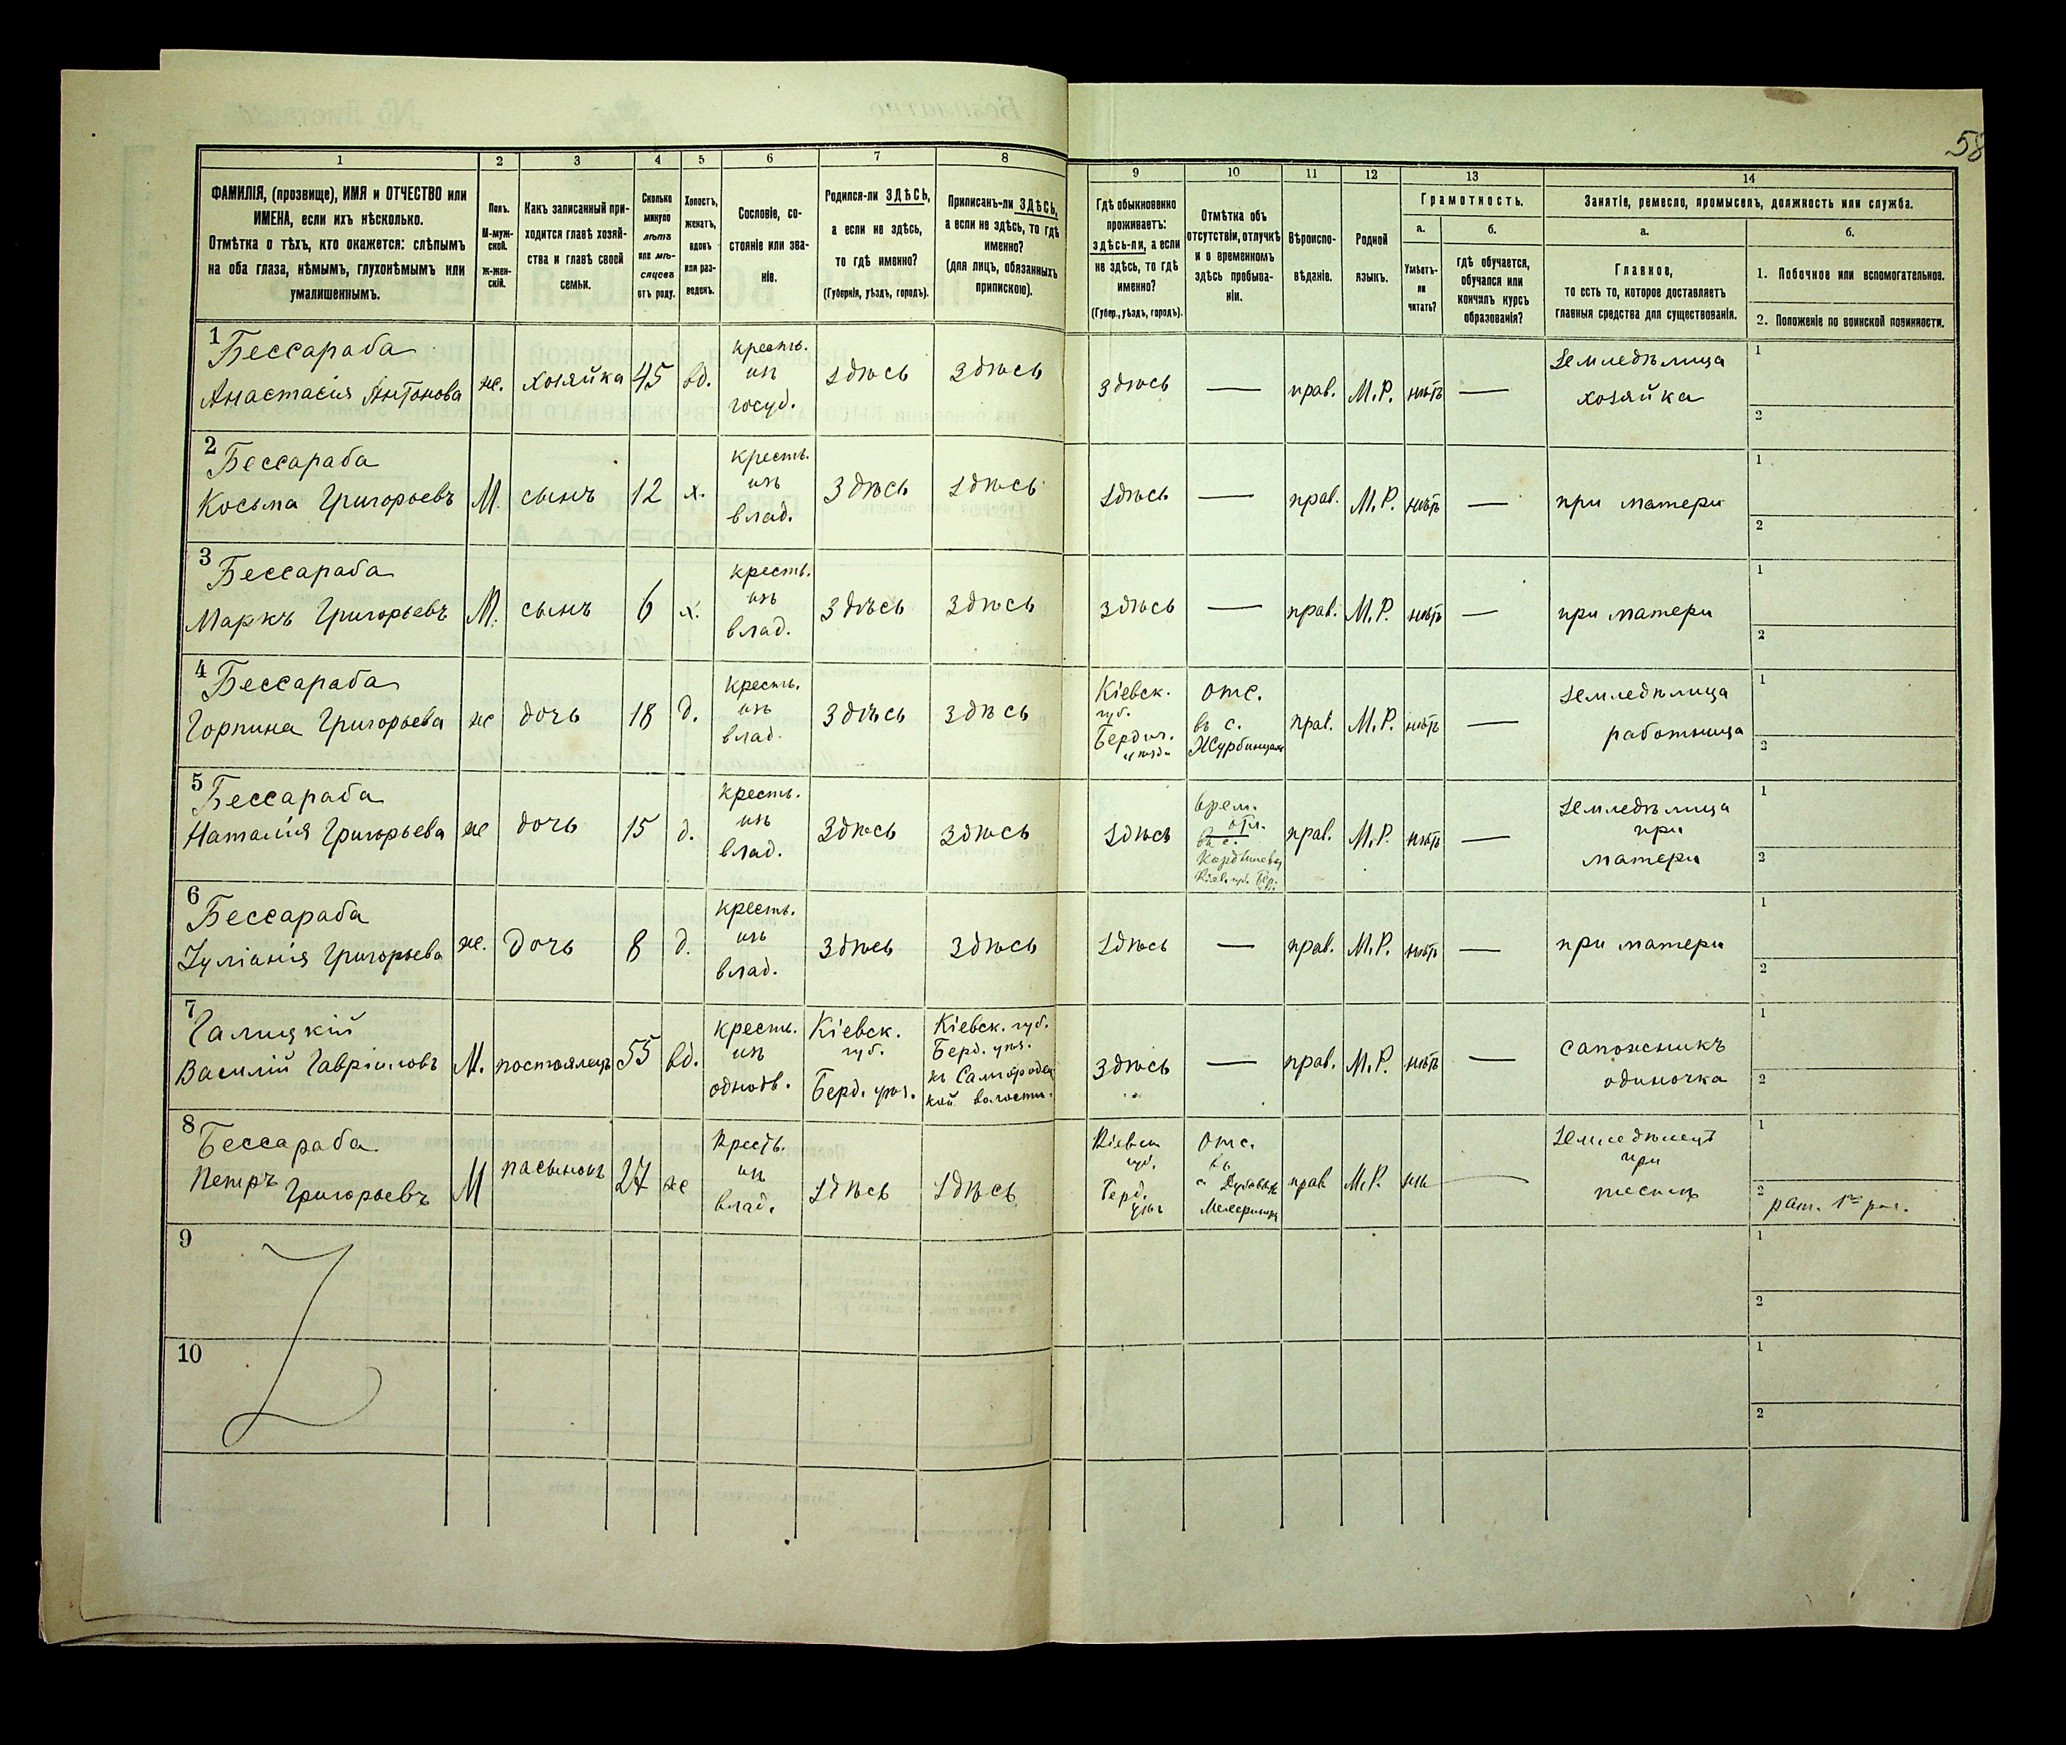 58
1 2 3 4 5 6 7 8 9 10 11 12 13 14
ФАМИЛІЯ, (прозвище), ИМЯ и ОТЧЕСТВО или
ИМЕНА, если ихъ нѣсколько.
Отмѣтка о тѣхъ, кто окажется: слѣпымъ
на оба глаза, нѣмымъ, глухонѣмымъ или
умалишеннымъ.
Полъ.
М-муж-
ской.
ж-жен-
скій.
Какъ записанный при-
ходится главѣ хозяй-
ства и главѣ своей
семьи.
Сколько
минуло
лѣтъ
или мѣ-
сяцевъ
отъ роду.
Холостъ,
женатъ,
вдовъ
или раз-
веденъ.
Сословіе, со-
стояніе или зва-
ніе.
Родился-ли ЗДѢСЬ,
а если не здѣсь,
то гдѣ именно?
(Губернія, уѣздъ, городъ).
Приписанъ-ли ЗДѢСЬ,
а если не здѣсь, то гдѣ
именно?
(для лицъ, обязанныхъ
припискою).
Гдѣ обыкновенно
проживаетъ:
здѣсь-ли, а если
не здѣсь, то гдѣ
именно?
(Губер., уѣздъ, городъ).
Отмѣтка объ
отсутствіи, отлучкѣ
и о временномъ
здѣсь пребыва-
ніи.
Вѣроиспо-
вѣданіе.
Родной
языкъ.
Грамотность.
а.
Умѣетъ-
ли
читать?
б.
гдѣ обучается,
обучался или
кончилъ курсъ
образованія?
Занятіе, ремесло, промыселъ, должность или служба.
а.
Главное,
то есть то, которое доставляетъ
главныя средства для существованія.
б.
1. Побочное или вспомогательное.
2. Положеніе по воинской повинности.
1
Бессараба
Анастасія Антонова
ж.
хозяйка
45
вд.
кресть.
изъ
госуд.
здѣсь
здѣсь
здѣсь
—
прав.
М.Р.
нѣтъ
—
земледѣлица
хозяйка
1
2
2
Бессараба
Косьма Григорьевъ
М.
сынъ
12
х.
кресть.
изъ
влад.
здѣсь
здѣсь
здѣсь
—
прав.
М.Р.
нѣтъ
—
при матери
1
2
3
Бессараба
Маркъ Григорьевъ
М.
сынъ
6
х.
кресть.
изъ
влад.
здѣсь
здѣсь
здѣсь
—
прав.
М.Р.
нѣтъ
—
при матери
1
2
4
Бессараба
Горпина Григорьева
ж
дочь
18
д.
кресть.
изъ
влад.
здѣсь
здѣсь
Кіевск.
губ.
Бердич.
уѣзда
отс.
въ с.
Журбинцахъ
прав.
М.Р.
нѣтъ
—
земледѣлица
работница
1
2
5
Бессараба
Наталія Григорьева
ж
дочь
15
д.
кресть.
изъ
влад.
здѣсь
здѣсь
здѣсь
врем.
отл.
въ с.
Кіев. губ. Бер.
прав.
М.Р.
нѣтъ
—
земледѣлица
при
матери
1
2
6
Бессараба
Іуліанія Григорьева
ж.
дочь
8
д.
кресть.
изъ
влад.
здѣсь
здѣсь
здѣсь
—
прав.
М.Р.
нѣтъ
—
при матери
1
2
7
Галицкій
Василій Гавріиловъ
М.
постоялецъ
55
вд.
кресть.
изъ
однодв.
Кіевск.
губ.
Берд. уѣз.
Кіевск. губ.
Берд. уѣз.
къ Самгородец
кой волости.
здѣсь
—
прав.
М.Р.
нѣтъ
—
сапожникъ
одиночка
1
2
8
Бессараба
Петръ
Григорьевъ
М
пасынокъ
27
ж
кресть.
изъ
влад.
здѣсь
здѣсь
Кіевск
губ.
Берд.
уѣз
отс.
въ
с
прав
М.Р.
—
земледѣлецъ
при
1
2
рат. 1го раз.
9
1
2
10
1
2